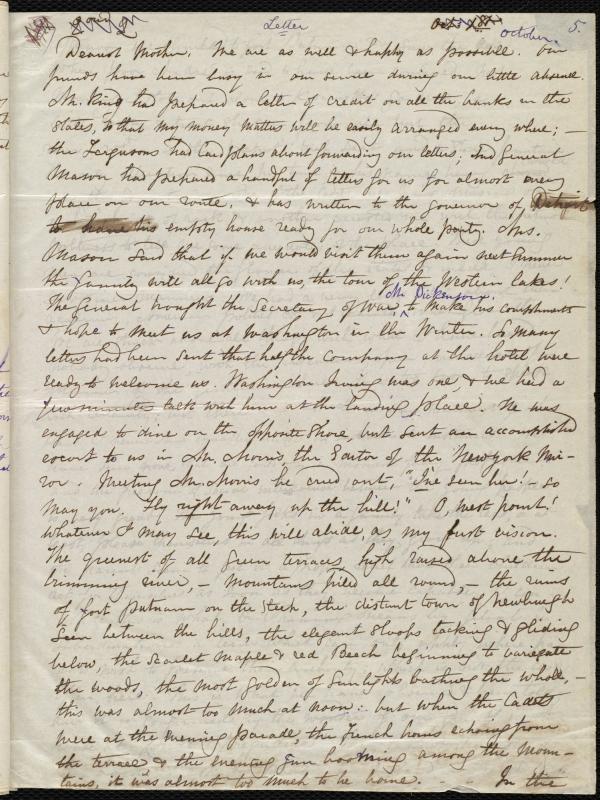 Letter
October.
5.
Dearest Mother. We are as well & happy as possible. Our
friends have been busy in our service during our little absence.
Mr. King had prepared a letter of credit on all the banks in the
States, so that my money matters will be easily arranged every where; –
the Fergusons had laid plans about forwarding our letters; and General
Mason had prepared a handful of letters for us for almost every
place on our route, & has written to the governor of Detroit
to have his empty house ready for our whole party. Mrs.
Mason said that if we would visit them again next Summer
the family will all go with us, the tour of the Western lakes!
The General brought the Secretary of War, Mr. Dickenson, to make his compliments
& hope to meet us at Washington in the Winter. So many
letters had been sent that half the company at the hotel were
ready to welcome us. Washington Irving was one, & we had a
few minutes talk with him at the landing place. He was
engaged to dine on the opposite shore, but sent an accomplished
escort to us in Mr. Morris the Editor of the New York Mir-
ror. Meeting Mr. Morris he cried out, "I've seen her; – so
may you. Fly right away up the hill!" O, West point!
Whatever I may see, this will abide, as my first vision.
The greenest of all green terraces, high raised above the
brimming river, – mountains piled all round, – the ruins
of fort Putnam on the steep, the distant town of Newburgh
seen between the hills, the elegant sloops tacking & gliding
below, the scarlet maple & red Beech beginning to variegate
the woods, the most golden of sunlights bathing the whole, –
this was almost too much at noon: but when the Cadets
were at the evening parade, the French horns echoing from
the terrace & the evening gun booming among the Moun-
tains, it was almost too much to be borne. – – In the